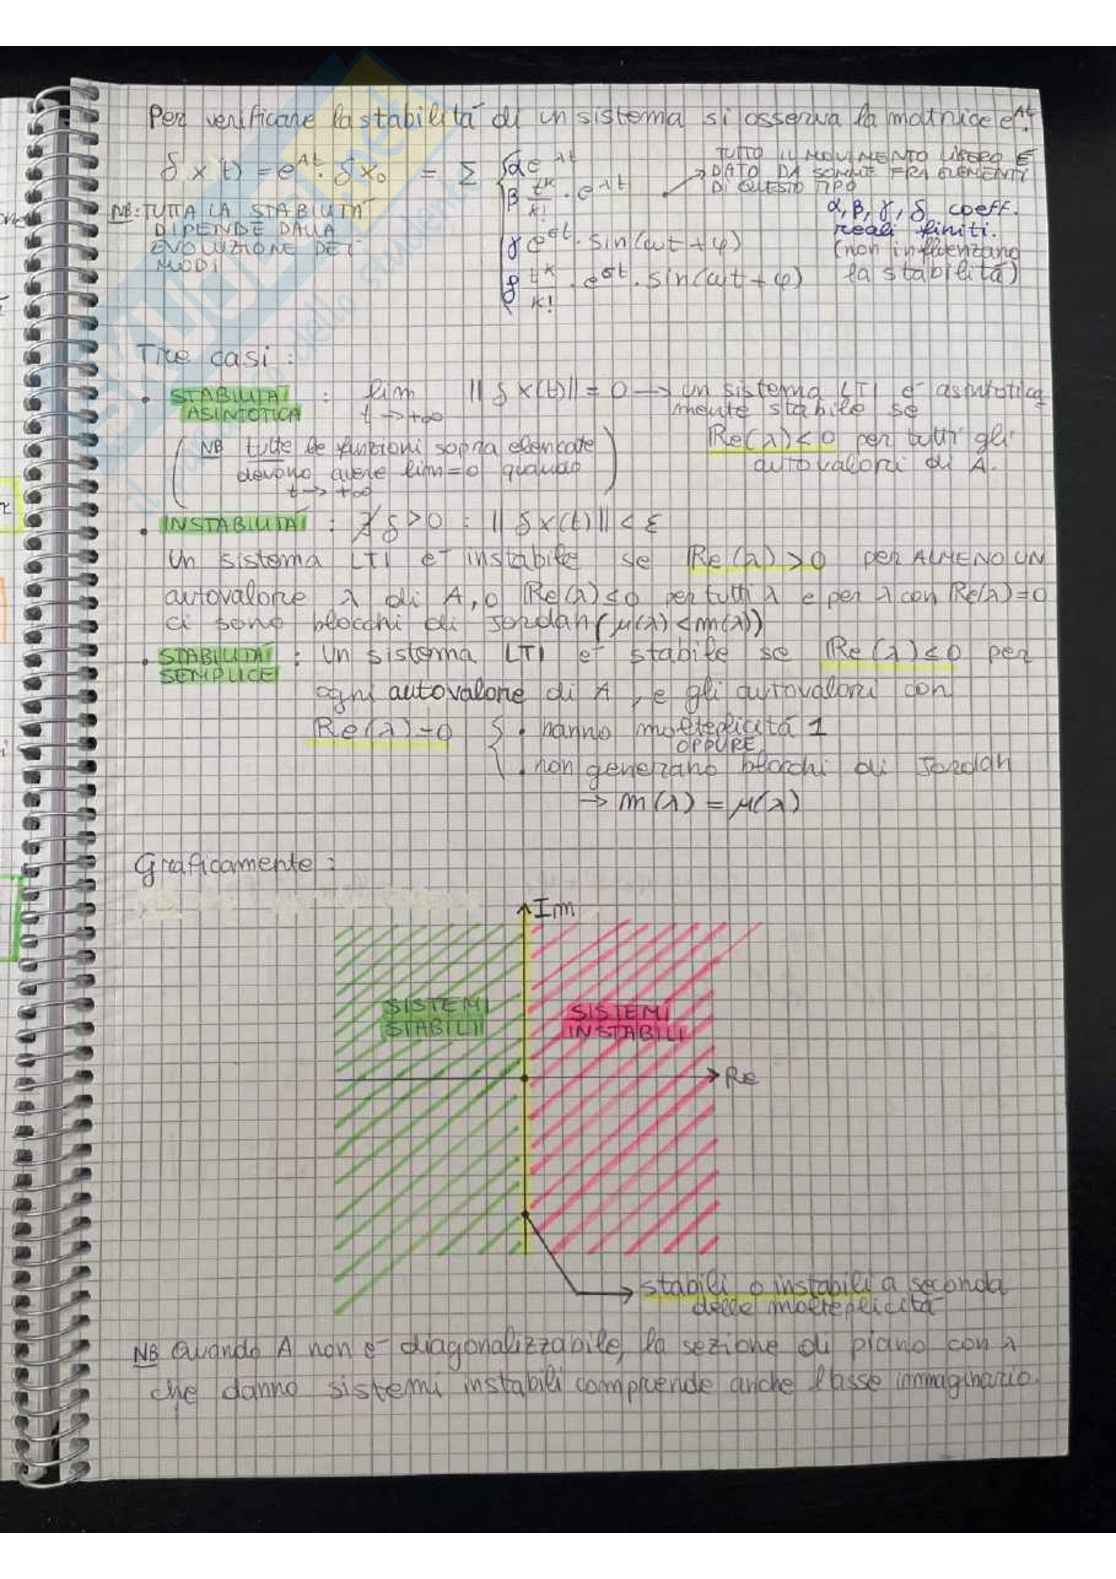 Per verificare la stabilità di un sistema si osserva la matrice e^At.
δx(t) = e^At · δx₀ = Σ { αe^λt
β t^k/k! · e^λt
γ e^σt · sin(ωt + φ)
δ t^k/k! · e^σt · sin(ωt + φ)
→ TUTTO IL MOVIMENTO LIBERO È
DATO DA SOMME FRA ELEMENTI
DI QUESTO TIPO
α, β, γ, δ coeff.
reali finiti.
(non influenzano
la stabilità)
NB: TUTTA LA STABILITÀ
DIPENDE DALLA
EVOLUZIONE DEI
MODI
Tre casi :
• STABILITÀ ASINTOTICA : lim t→+∞ ||δx(t)|| = 0 → un sistema LTI è asintotica
mente stabile se
Re(λ)<0 per tutti gli
autovalori di A.
(NB tutte le funzioni sopra elencate
devono avere lim=0 quando
t→+∞)
• INSTABILITÀ : ∄ δ>0 : ||δx(t)|| < ε
Un sistema LTI è instabile se Re(λ)>0 per ALMENO UN
autovalore λ di A, o Re(λ)≤0 per tutti λ e per λ con Re(λ)=0
ci sono blocchi di Jordan (μ(λ)<m(λ))
• STABILITÀ SEMPLICE : Un sistema LTI è stabile se Re(λ)≤0 per
ogni autovalore di A, e gli autovalori con
Re(λ)=0 { • hanno molteplicità 1
OPPURE
• non generano blocchi di Jordan
→ m(λ) = μ(λ)
Graficamente :
Im
SISTEMI
STABILI
SISTEMI
INSTABILI
Re
stabili o instabili a seconda
delle molteplicità
NB Quando A non è diagonalizzabile, la sezione di piano con λ
che danno sistemi instabili comprende anche l'asse immaginario.